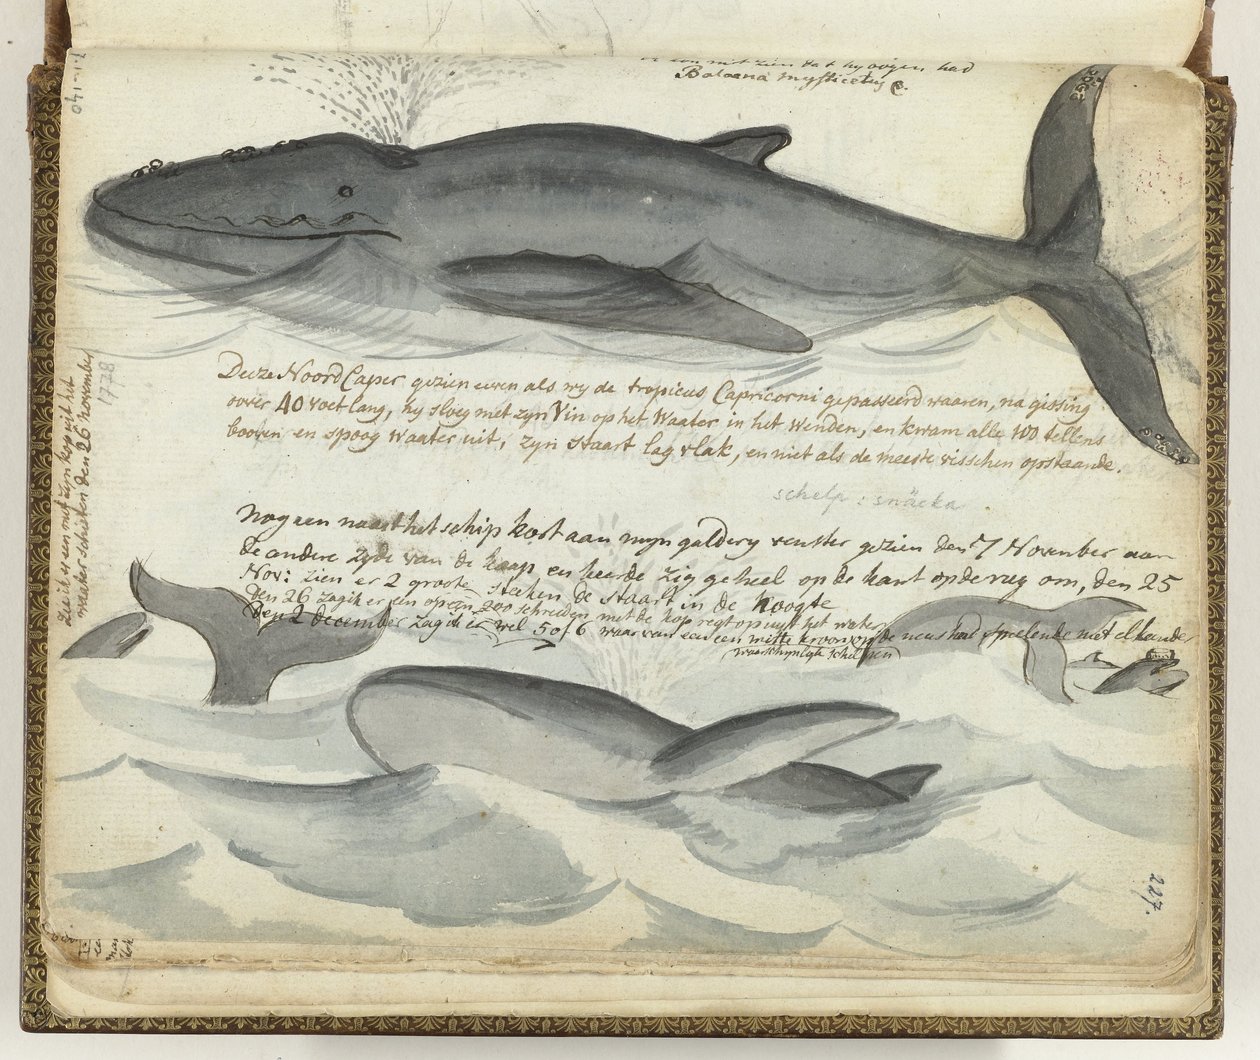 dat hy oogen had
Balaena mysticetus
Deeze Noord Caper gezien even als wy de tropicus Capricorni gepasseerd waaren, na gissing
over 40 voet lang, hy sloeg met zyn Vin op het Waater in het wenden, en kwam alle 100 tellens
booven en spoog waater uit, zyn staart lag vlak, en niet als de meeste visschen opstaande.
schelp : snäcka
Nog een naast het schip kort aan myn galdery venster gezien den 7 November aan
de andere zyde van de kaap en keerde zig geheel op de kant op de rug om, den 25
Nov: zien er 2 groote steeken de staart in de hoogte
den 26 zag ik er een op 200 schreeden met de kop regt op uyt het water
Den 2 december zag ik er wel 5 of 6 waar van een een witte kroon op de neus had, speelende met elkander
waarschynlyk schelpen
zie ik er een met zyn kop uit het
waater schieten den 26 november
1778
227.